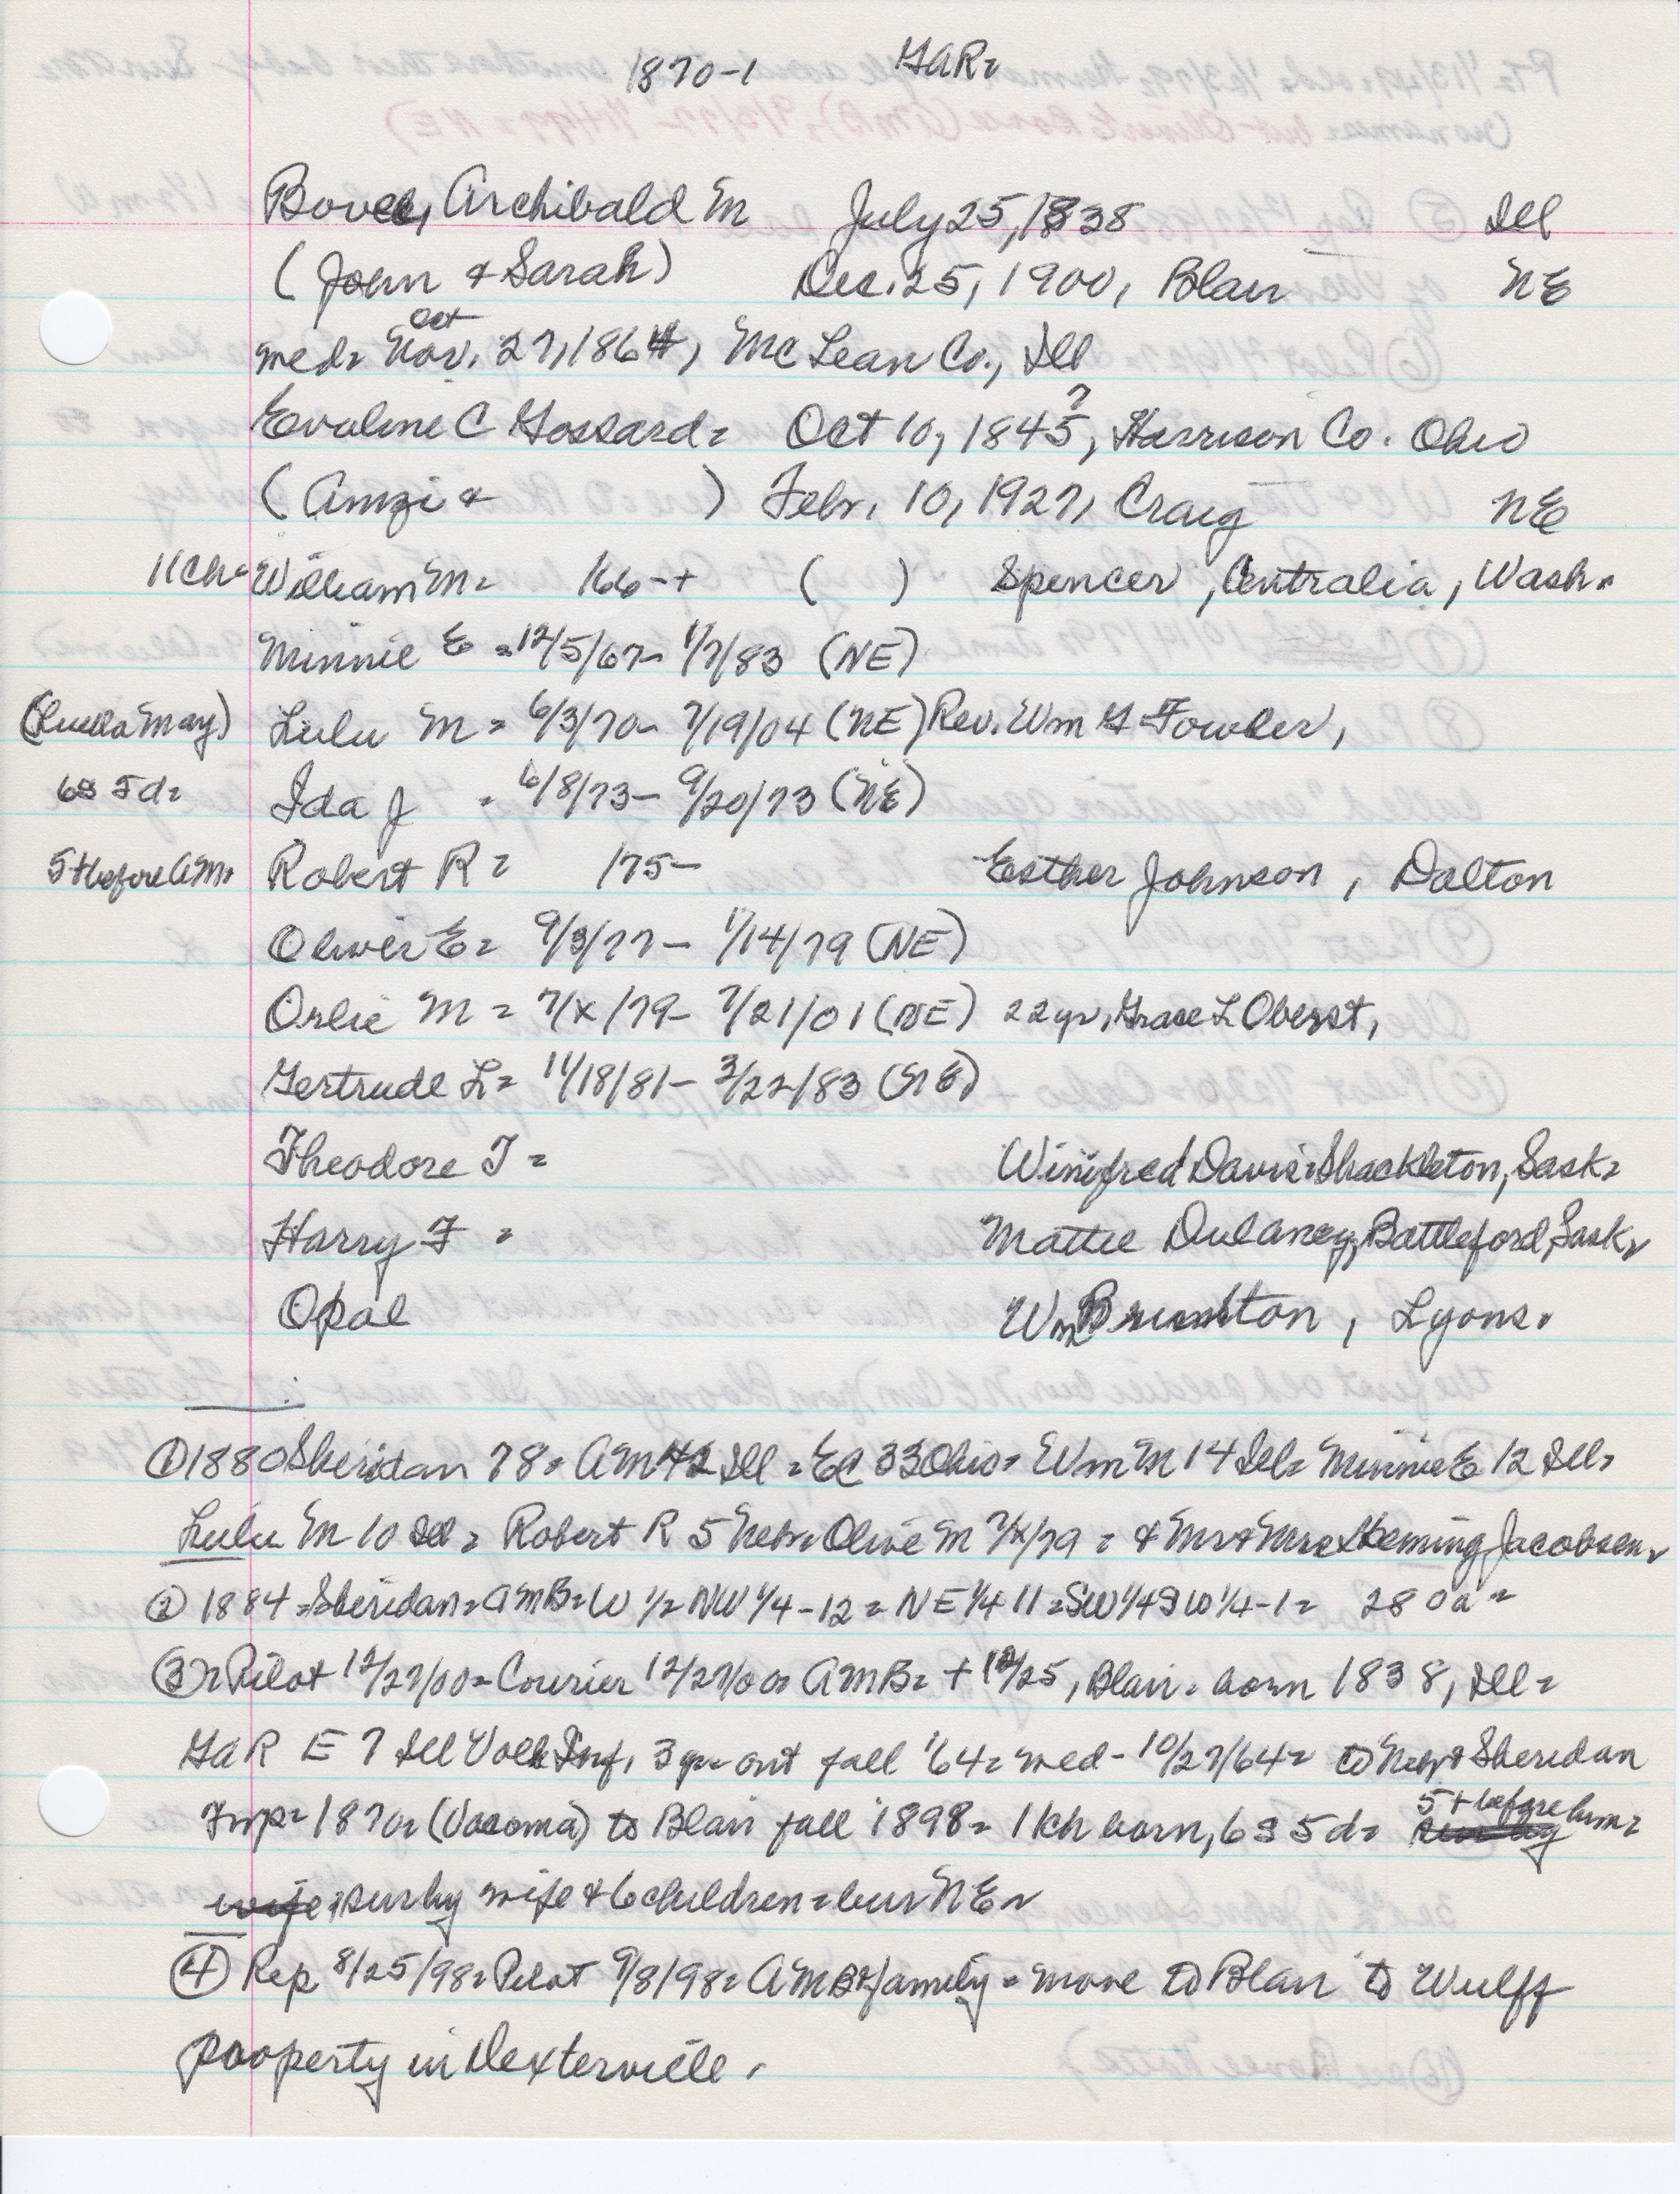 1870-1 GAR=
Bovee, Archibald M July 25, 1838 Ill
(John & Sarah) Dec. 25, 1900, Blair NE
Oct
med= Nov. 27, 1864, McLean Co., Ill
Evaline C Gossard= Oct 10, 1845?, Harrison Co. Ohio
(Amzi & ) Febr. 10, 1927, Craig NE
11ch= William M= 166-+ ( ) Spencer, Centralia, Wash.
Minnie E = 12/5/67- 1/7/83 (NE)
(Luella May) Lulu M = 6/3/70- 7/19/04 (NE) Rev. Wm G Fowler,
6s 5d= Ida J = 6/8/73- 9/20/73 (NE)
5+before AM= Robert R= 175- Esther Johnson, Dalton
Oliver E= 9/3/77- 1/14/79 (NE)
Orlie M = 7/x/79- 7/21/01 (NE) 22yr, Grace L Oberst,
Gertrude L= 11/18/81- 3/22/83 (NE)
Theodore T = Winifred Davis=Shackleton, Sask=
Harry F = Mattie Dulaney, Battleford, Sask=
Opal Wm Brumton, Lyons.
① 1880 Sheridan 78= AM 42 Ill = EC 33 Ohio= Wm M 14 Ill= Minnie E 12 Ill=
Lulu M 10 Ill = Robert R 5 Nebr= Olive M 7/x/79 = & Mr & Mrs Heming Jacobsen=
② 1884=Sheridan=AMB=W 1/2 NW 1/4-12 = NE 1/4 11=SW 1/4 SW 1/4-1= 280a=
③= Pilot 12/27/00= Courier 12/27/00= AMB= + 12/25, Blair= born 1838, Ill=
GAR E 7 Ill Vol Inf, 3 yr= out fall '64= med- 10/27/64= to Nebr & Sheridan
Twp= 1870= (Vacoma) to Blair fall 1898= 11ch born, 6s 5d= 5+before him=
wife, sur by wife & 6 children= bur NE=
④ Rep 8/25/98= Pilot 9/8/98= AMB & family = move to Blair to Wulff
property in Dexterville.